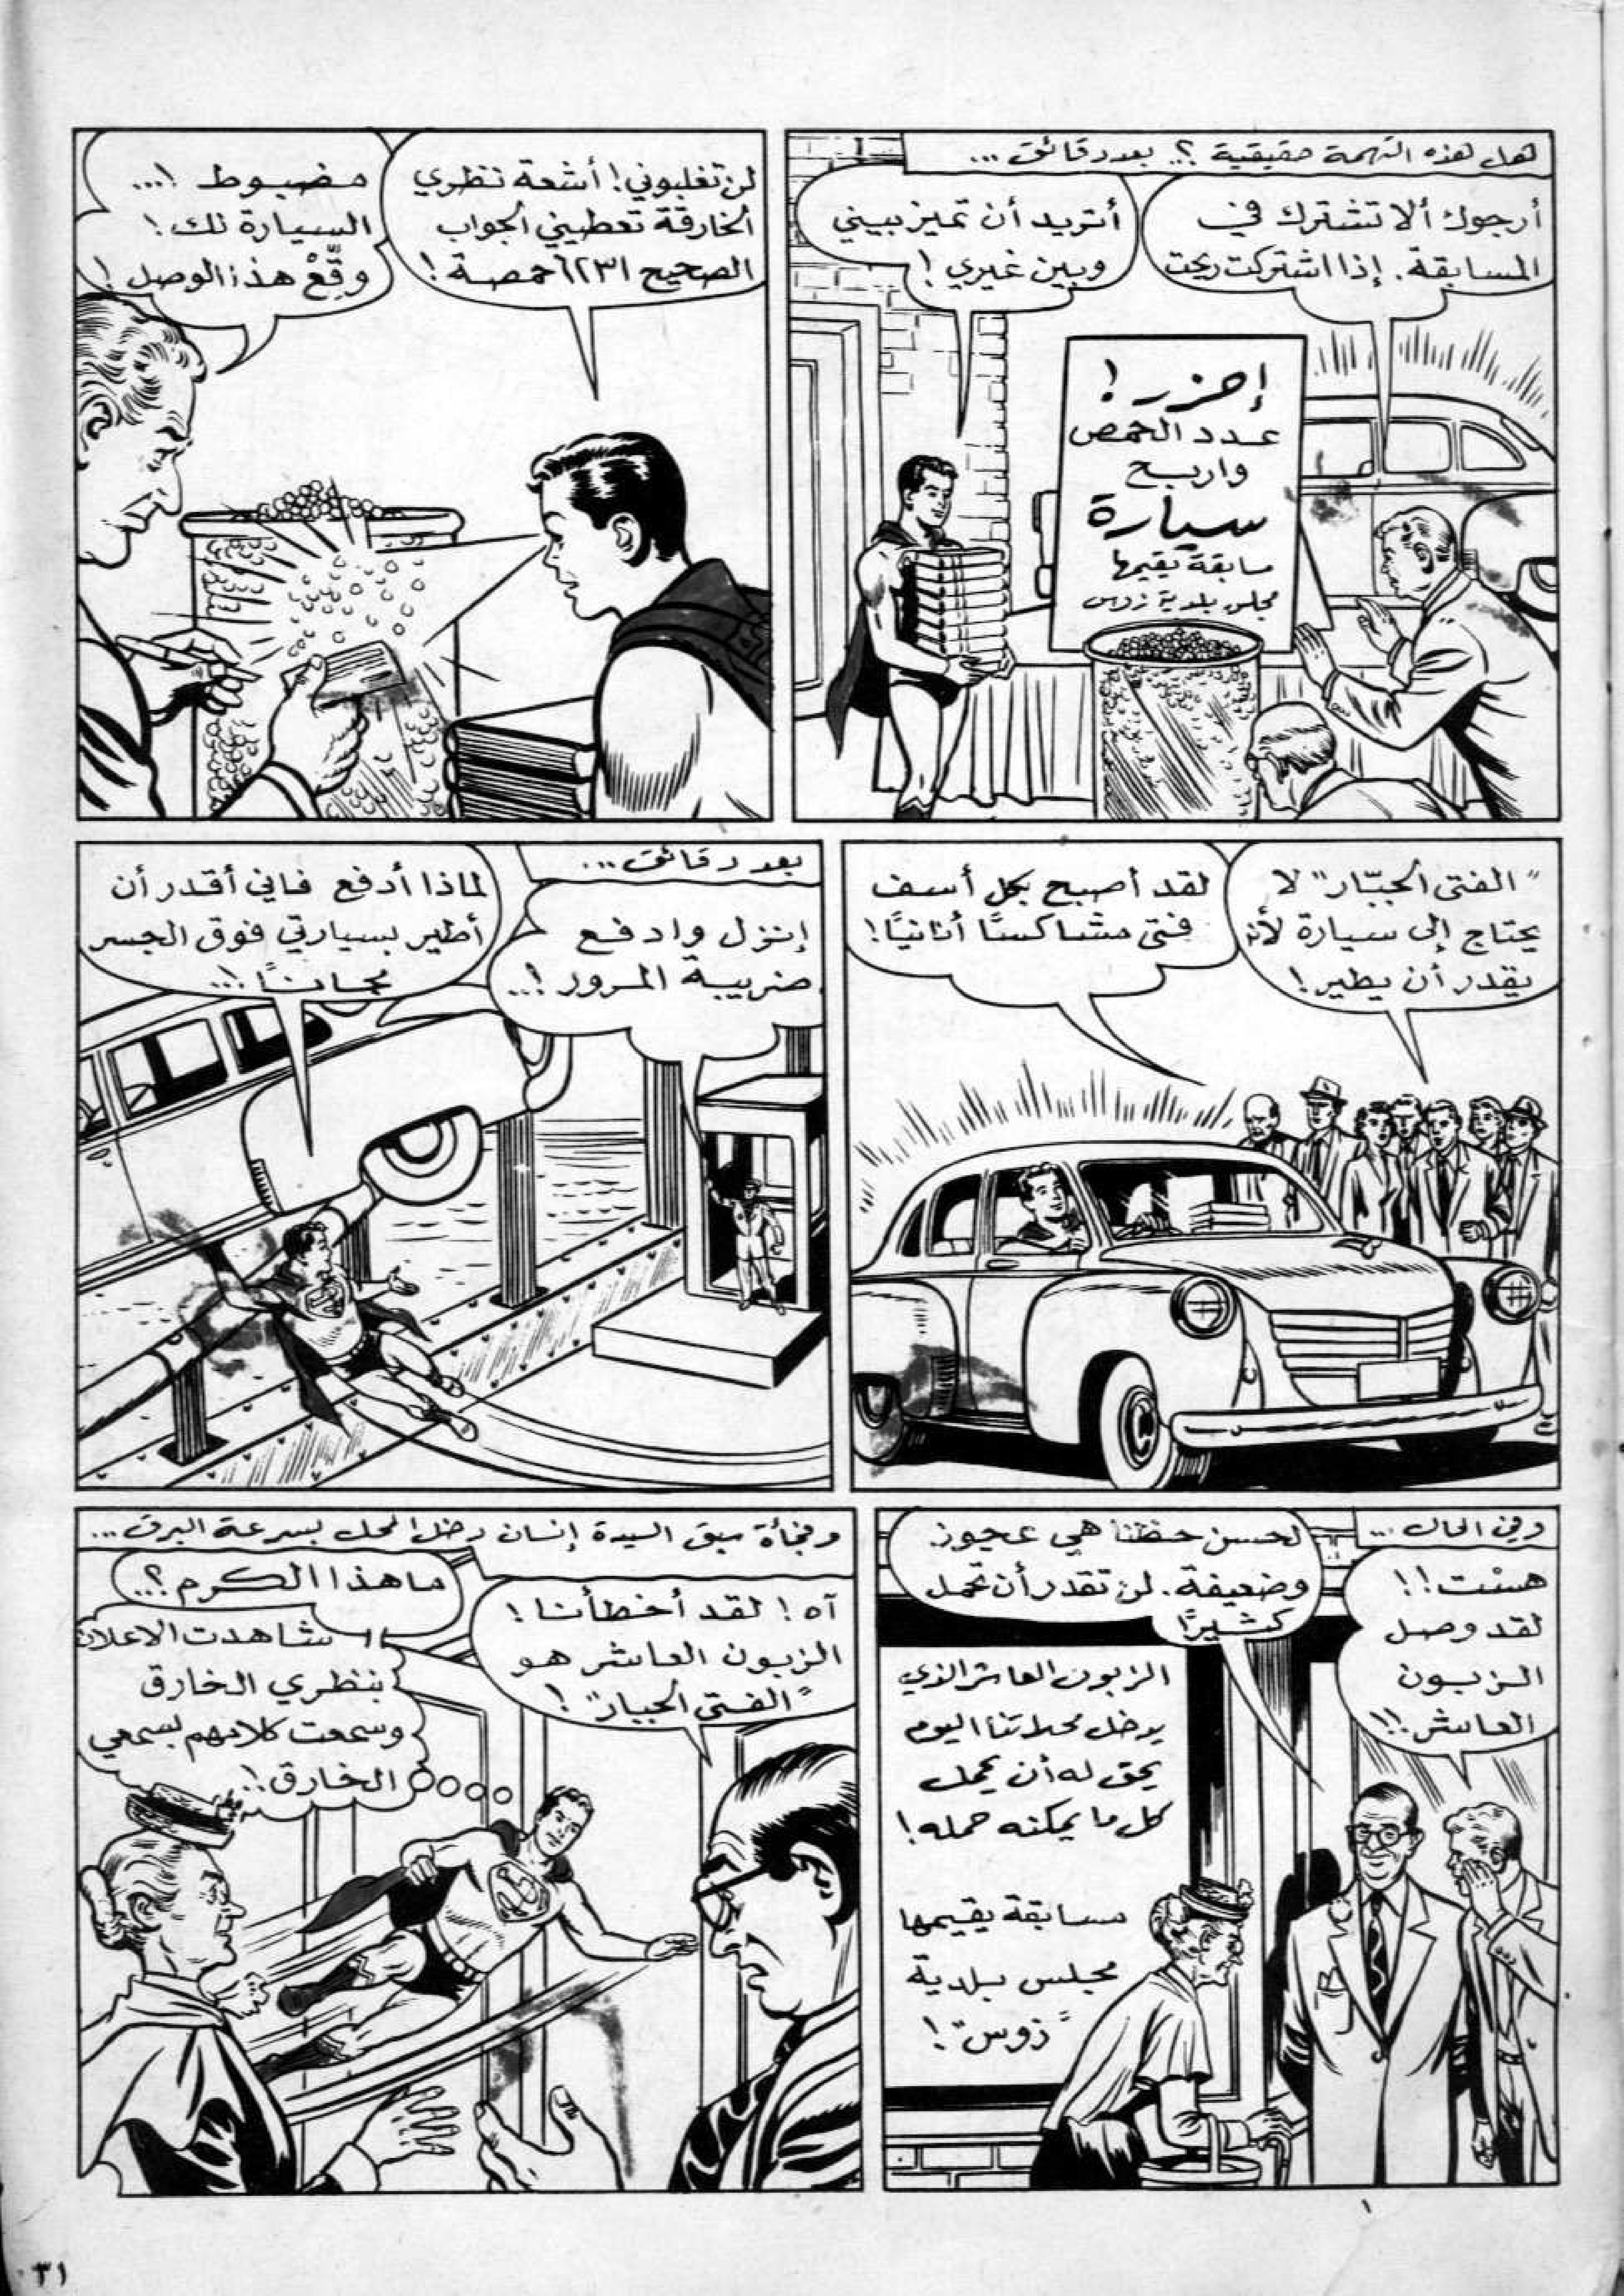 لعل هذه التهمة حقيقية ؟.. بعد دقائق ...
أرجوك ألا تشترك في
المسابقة. إذا اشتركت ربحت
أتريد أن تميز بيني
وبين غيري !
إحزر !
عدد الحمص
واربح
سيارة
مسابقة يقيمها
مجلس بلدية زوس
لن تغلبوني! أشعة نظري
الخارقة تعطيني الجواب
الصحيح ٦٢٣١ حمصة !
مضبوط !...
السيارة لك !
وقّعْ هذا الوصل !
"الفتى الجبّار" لا
يحتاج إلى سيارة لأنه
يقدر أن يطير !
لقد أصبح بكل أسف
فتىً مشاكسًا أنانيًا !
بعد دقائق ...
إنزل وادفع
ضريبة المرور !...
لماذا أدفع فاني أقدر أن
أطير بسيارتي فوق الجسر
مجانًا !...
وفي الحال ...
هسْت !!
لقد وصل
الزبون
العاشر !!
لحسن حظنا هي عجوز
وضعيفة. لن تقدر أن تحمل
كثيرًا
الزبون العاشر الذي
يدخل محلاتنا اليوم
يحق له أن يحمل
كل ما يمكنه حمله !
مسابقة يقيمها
مجلس بلدية
"زوس" !
وفجأة سبق السيدة إنسان دخل المحل بسرعة البرق ...
آه ! لقد أخطأنا !
الزبون العاشر هو
"الفتى الجبار" !
ما هذا الكرم ؟..
شاهدت الاعلان
بنظري الخارق
وسمعت كلامهم بسمعي
الخارق !.
١
٣١